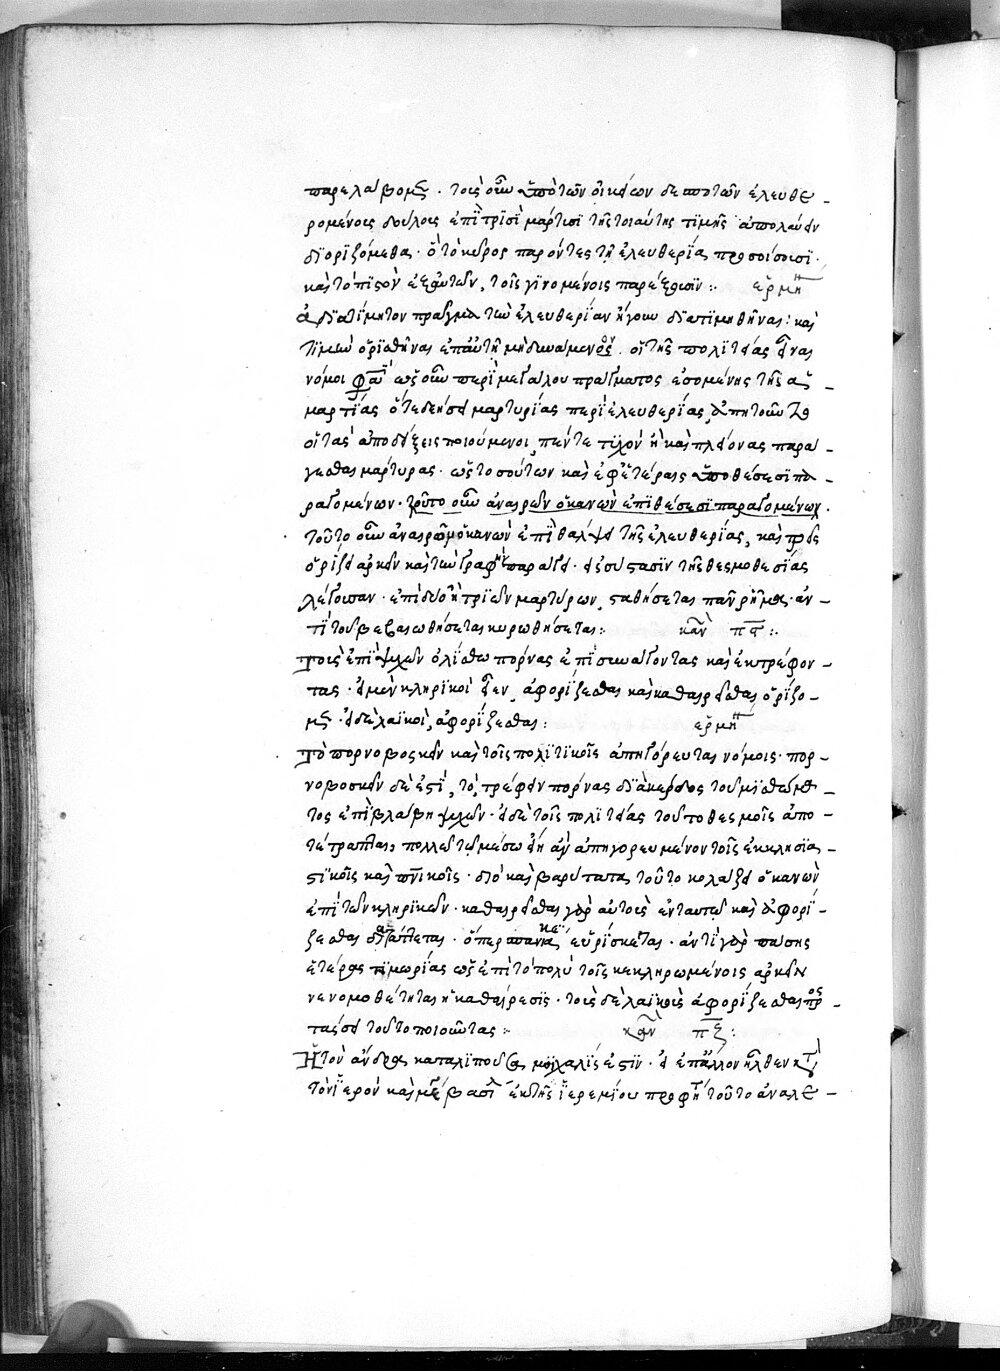 παρελάβομεν· τοὺς οὖν ὑπὸ τῶν οἰκείων δεσποτῶν ἐλευθε-
ρουμένους δούλους ἐπὶ τρισὶ μάρτυσι τῆς τοιαύτης τιμῆς ἀπολαύειν
διοριζόμεθα· οἳ τὸ κῦρος παρόντες τῇ ἐλευθερίᾳ προσοίσουσι·
καὶ τὸ πιστὸν ἐξ αὐτῶν, τοῖς γινομένοις παρέξουσιν: ἑρμη
ἀδιατίμητον πρᾶγμα τὴν ἐλευθερίαν ἤγουν διατιμηθῆναι: καὶ
τιμὴν ὁρισθῆναι ἐπ' αὐτῇ μὴ δυναμένην. οἱ τῆς πολιτείας
νόμοι φασί· ὡς οὖν περὶ μεγάλου πράγματος ἐσομένης τῆς
μαρτυρίας περὶ ἐλευθερίας, ἀπῃτοῦντο
οἱ τὰς ἀποδείξεις ποιούμενοι, πέντε τυχὸν ἢ καὶ πλείονας παρά-
γεσθαι μάρτυρας· ὡς τοσούτων καὶ ἐφ' ἑτέραις ὑποθέσεσι πα-
ραγομένων· τοῦτο οὖν ἀναιρῶν ὁ κανὼν ἐπιθέσεσι παραγομένων.
τοῦτο οὖν ἀναιρῶν ὁ κανὼν ἐπὶ τῆς ἐλευθερίας, καὶ τρεῖς
ὁρίζει ἀρκεῖν καὶ τὴν γραφὴν παράγει· τῆς θεσμοθεσίας
λέγουσαν· ἐπὶ δύο ἢ τριῶν μαρτύρων, σταθήσεται πᾶν ῥῆμα· ἀν-
τὶ τοῦ βεβαιωθήσεται κυρωθήσεται: κανὼν πϛ:
Τοὺς ἐπὶ ψυχῶν ὀλίσθῳ πόρνας ἐπισυνάγοντας καὶ ἐκτρέφον-
τας· εἰ μὲν κληρικοὶ εἶεν, ἀφορίζεσθαι καὶ καθαιρεῖσθαι ὁρίζο-
μεν· εἰ δὲ λαϊκοί, ἀφορίζεσθαι: ἑρμη
Τὸ πορνοβοσκεῖν καὶ τοῖς πολιτικοῖς ἀπηγόρευται νόμοις· πορ-
νοβοσκεῖν δέ ἐστι, τὸ τρέφειν πόρνας διὰ κέρδος τοῦ μισθώμα-
τος ἐπὶ βλάβῃ ψυχῶν· εἰ δὲ τοῖς πολιτείας τοῦτο θεσμοῖς ἀπο-
τέτραπται, πολλῷ τῷ μέσῳ εἴη ἂν ἀπηγορευμένον τοῖς ἐκκλησια-
στικοῖς καὶ πνικοῖς· διὸ καὶ βαρύτατα τοῦτο κολάζει ὁ κανὼν
ἐπὶ τῶν κληρικῶν· καθαιρεῖσθαι γὰρ αὐτοὺς ἐνταυτῷ καὶ ἀφορί-
ζεσθαι διατάττεται· ὅπερ εὑρίσκεται· ἀντὶ γὰρ πάσης
ἑτέρας τιμωρίας ὡς ἐπὶ τὸ πολὺ τοῖς κεκληρωμένοις ἀρκεῖν
νενομοθέτηται ἡ καθαίρεσις· τοὺς δὲ λαϊκοὺς ἀφορίζεσθαι προσ-
τάσσει τοῦτο ποιοῦντας: κανὼν πζ:
Ἡ τὸν ἄνδρα καταλιποῦσα μοιχαλίς ἐστιν· εἰ ἐπ' ἄλλον ἦλθεν κατὰ
τὸν ἱερὸν καὶ μέγαν βασίλειον ἐκ τῆς ἱερεμίου προφητείας τοῦτο ἀναλε-